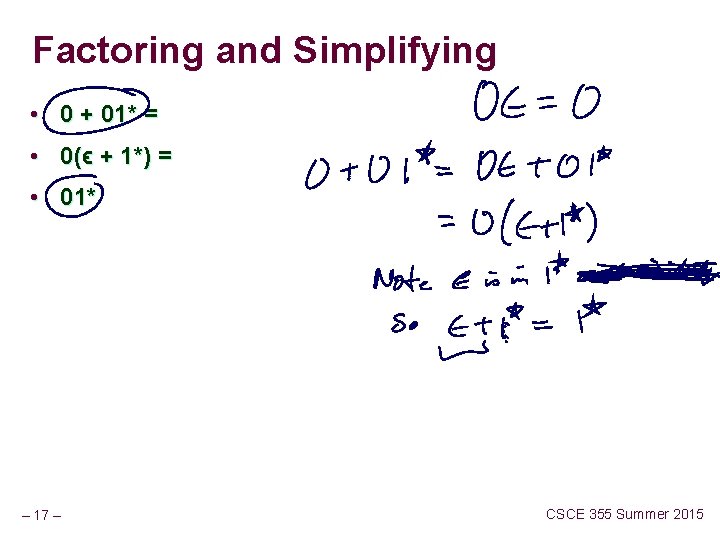 Factoring and Simplifying
• 0 + 01* =
• 0(ϵ + 1*) =
• 01*
0ϵ = 0
0 + 01* = 0ϵ + 01*
= 0(ϵ+1*)
Note ϵ is in 1*
So ϵ + 1* = 1*
– 17 –
CSCE 355 Summer 2015